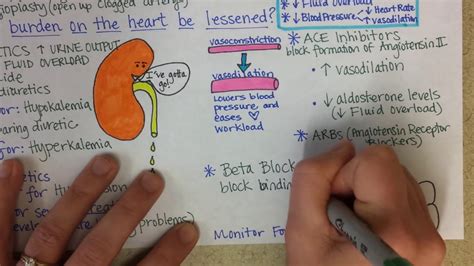 ngioplasty (open up clogged arteries)
burden on the heart be lessened?
↓ Fluid Overload
* ↓ Blood Pressure ↓ Heart Rate
↑ vasodilation
ETICS ↑ URINE OUTPUT
FLUID OVERLOAD
ide
diuretics
for: Hypokalemia
paring diuretic
for: Hyperkalemia
etics
for Hypo
for se
dlow problems)
I've gotta go!
vasoconstriction
vasodilation
Lowers blood
pressure and
eases ♥
workload
* ACE Inhibitors
block formation of Angiotensin II
↑ vasodilation
↓ aldosterone levels
(↓ Fluid overload)
* ARBs (Angiotensin Receptor
Blockers)
* Beta Block
block bindin
Monitor Fo